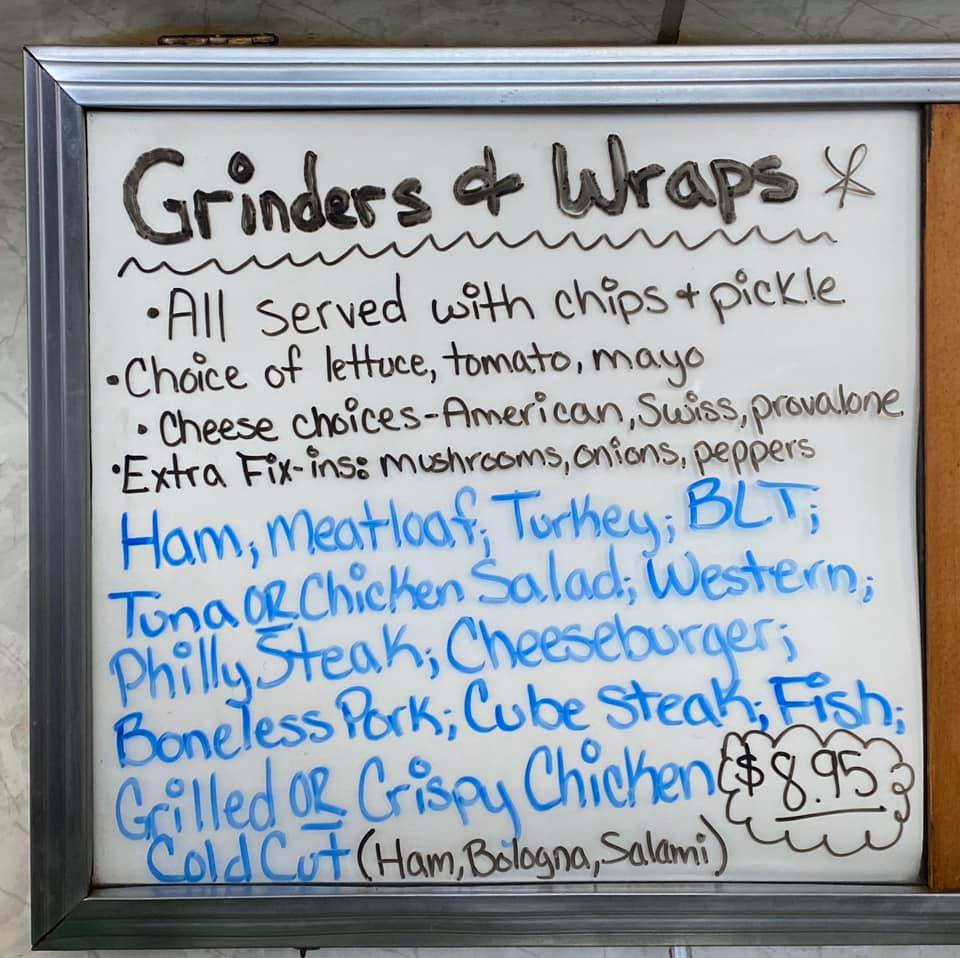 Grinders & Wraps *
• All served with chips + pickle
• Choice of lettuce, tomato, mayo
• Cheese choices-American, Swiss, provalone
• Extra Fix-ins: mushrooms, onions, peppers
Ham; Meatloaf; Turkey; BLT;
Tuna OR Chicken Salad; Western;
Philly Steak; Cheeseburger;
Boneless Pork; Cube Steak; Fish;
Grilled OR Crispy Chicken $8.95
Cold Cut (Ham, Bologna, Salami)